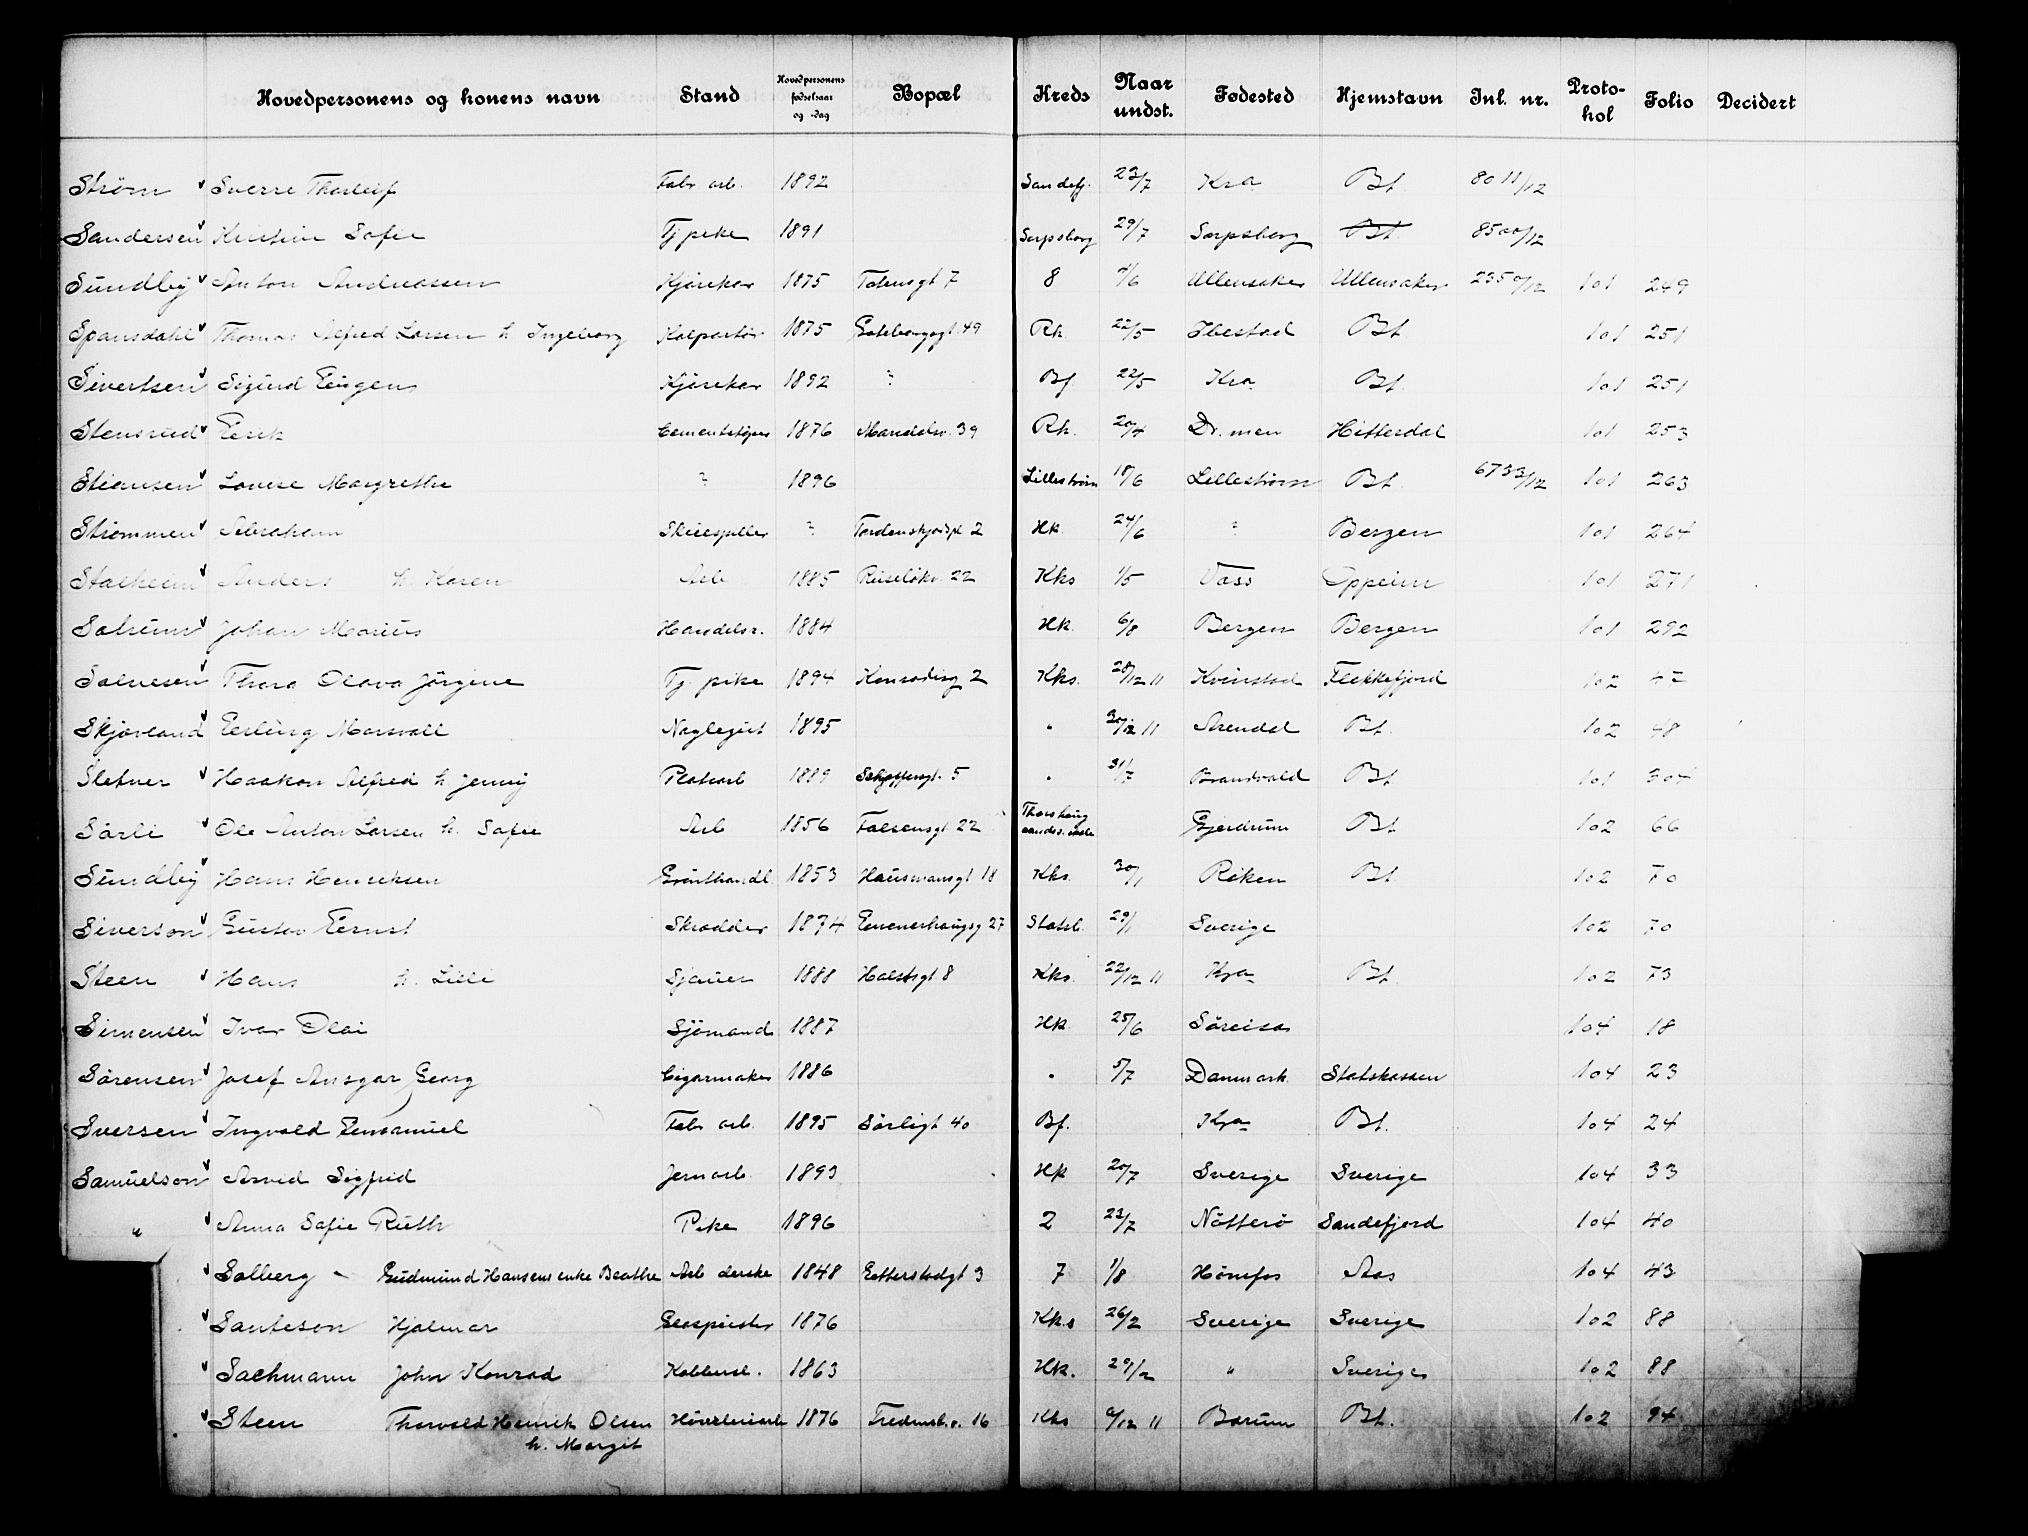 Hovedpersonens og konens navn Stand Hovedpersonens fødselsaar og -dag Bopæl Kreds Naar undst. Fødested Hjemstavn Inl. nr. Protokol Folio Decidert
Strøm Sverre Thorleif Fabr arb. 1892 Sandefj. 23/7 Kra Bt. 8011/12
Sandersen Kristine Sofie Tj pike 1891 Sarpsborg 29/7 Sarpsborg Bt 8500/12
Sundby Anton Andreassen Kjørekar 1875 Totensgt 7 8 4/6 Ullensaker Ullensaker 2350/12 101 249
Spansdahl Thomas Alfred Larsen h Ingeborg Kolportør 1875 Goteborggt. 49 Rk. 22/5 Ibestad Bt 101 251
Sivertsen Sigurd Eugen Kjørekar 1892 ? Bf 22/5 Kra Bt. 101 251
Stensrud Erik Cementstøper 1876 Mandalsv. 39 Rk. 20/4 Dr.men Hitterdal 101 253
Stiansen Louise Margrethe ? 1896 Lillestrøm 18/6 Lillestrøm Bt. 6733/12 101 263
Strømmen Abraham Skuespiller ? Tordenskjoldpl 2 Hk. 24/6 ? Bergen 101 264
Stalheim Anders h. Karen Arb 1885 Ruseløkv. 22 Kks 1/5 Voss Oppeim 101 271
Johan Marius Handelsr. 1884 Hk. 6/8 Bergen Bergen 101 292
Salvesen Thora Olava Jørgine Tj. pike 1894 Konradisg 2 Kks. 28/12 11 Kvinstad Flekkefjord 102
Skjøvland Erling Marsvall Naglegut 1895 " 30/12 11 Arendal Bt. 102 48
Sletner Haakon Alfred h Jenny Platearb 1889 Schøffersgt. 5 " 31/7 Brandvald Bt 101 304
Sørli Ole Anton Larsen h. Sofie Arb 1856 Falsensgt 22 Thorshaug Gjerdrum Bt 102 66
Sundby Hans Henriksen Grønthandl. 1853 Hausmansgt 18 Kks. 30/1 Røken Bt 102 70
Siverson Gustav Ernst Skrædder 1874 Enenerhaugsg 27 Statsb. 29/1 Sverige 102 70
Steen Hans h. Lilli Sjauer 1888 Holstsgt 8 Kks. 22/12 11 Kra Bt. 102 73
Simensen Ivar Olai Sjømand 1887 Hk. 25/6 Søreisa 104 18
Sørensen Josef Ansgar Georg Cigarmaker 1886 " 5/7 Danmark. Statskassen 104 23
Sversen Ingvald Emanuel Fabr arb. 1895 Sørligt 40 Bf. Kra Bt. 104 24
Samuelson Arvid Sigfrid Jernarb. 1893 Hk 20/7 Sverige Sverige 104 33
" Anna Sofie Ruth Pike 1896 2 23/7 Nøtterø Sandefjord 104 40
Solberg - Gudmund Hansens enke Beathe Arb derske 1848 Etterstadgt 3 7 1/8 Hønefos Aas 104 43
Santeson Hjalmar 1876 Kks 26/2 Sverige Sverige 102 88
Sachmann John Konrad Kobbersl. 1863 Hk. 29/2 " Sverige 102 88
Steen Thorvald Henrik Olsen Høvleriarb 1876 Fredensb.v. 16 Kks 6/12 11 Bærum Bt. 102 94
h. Margit